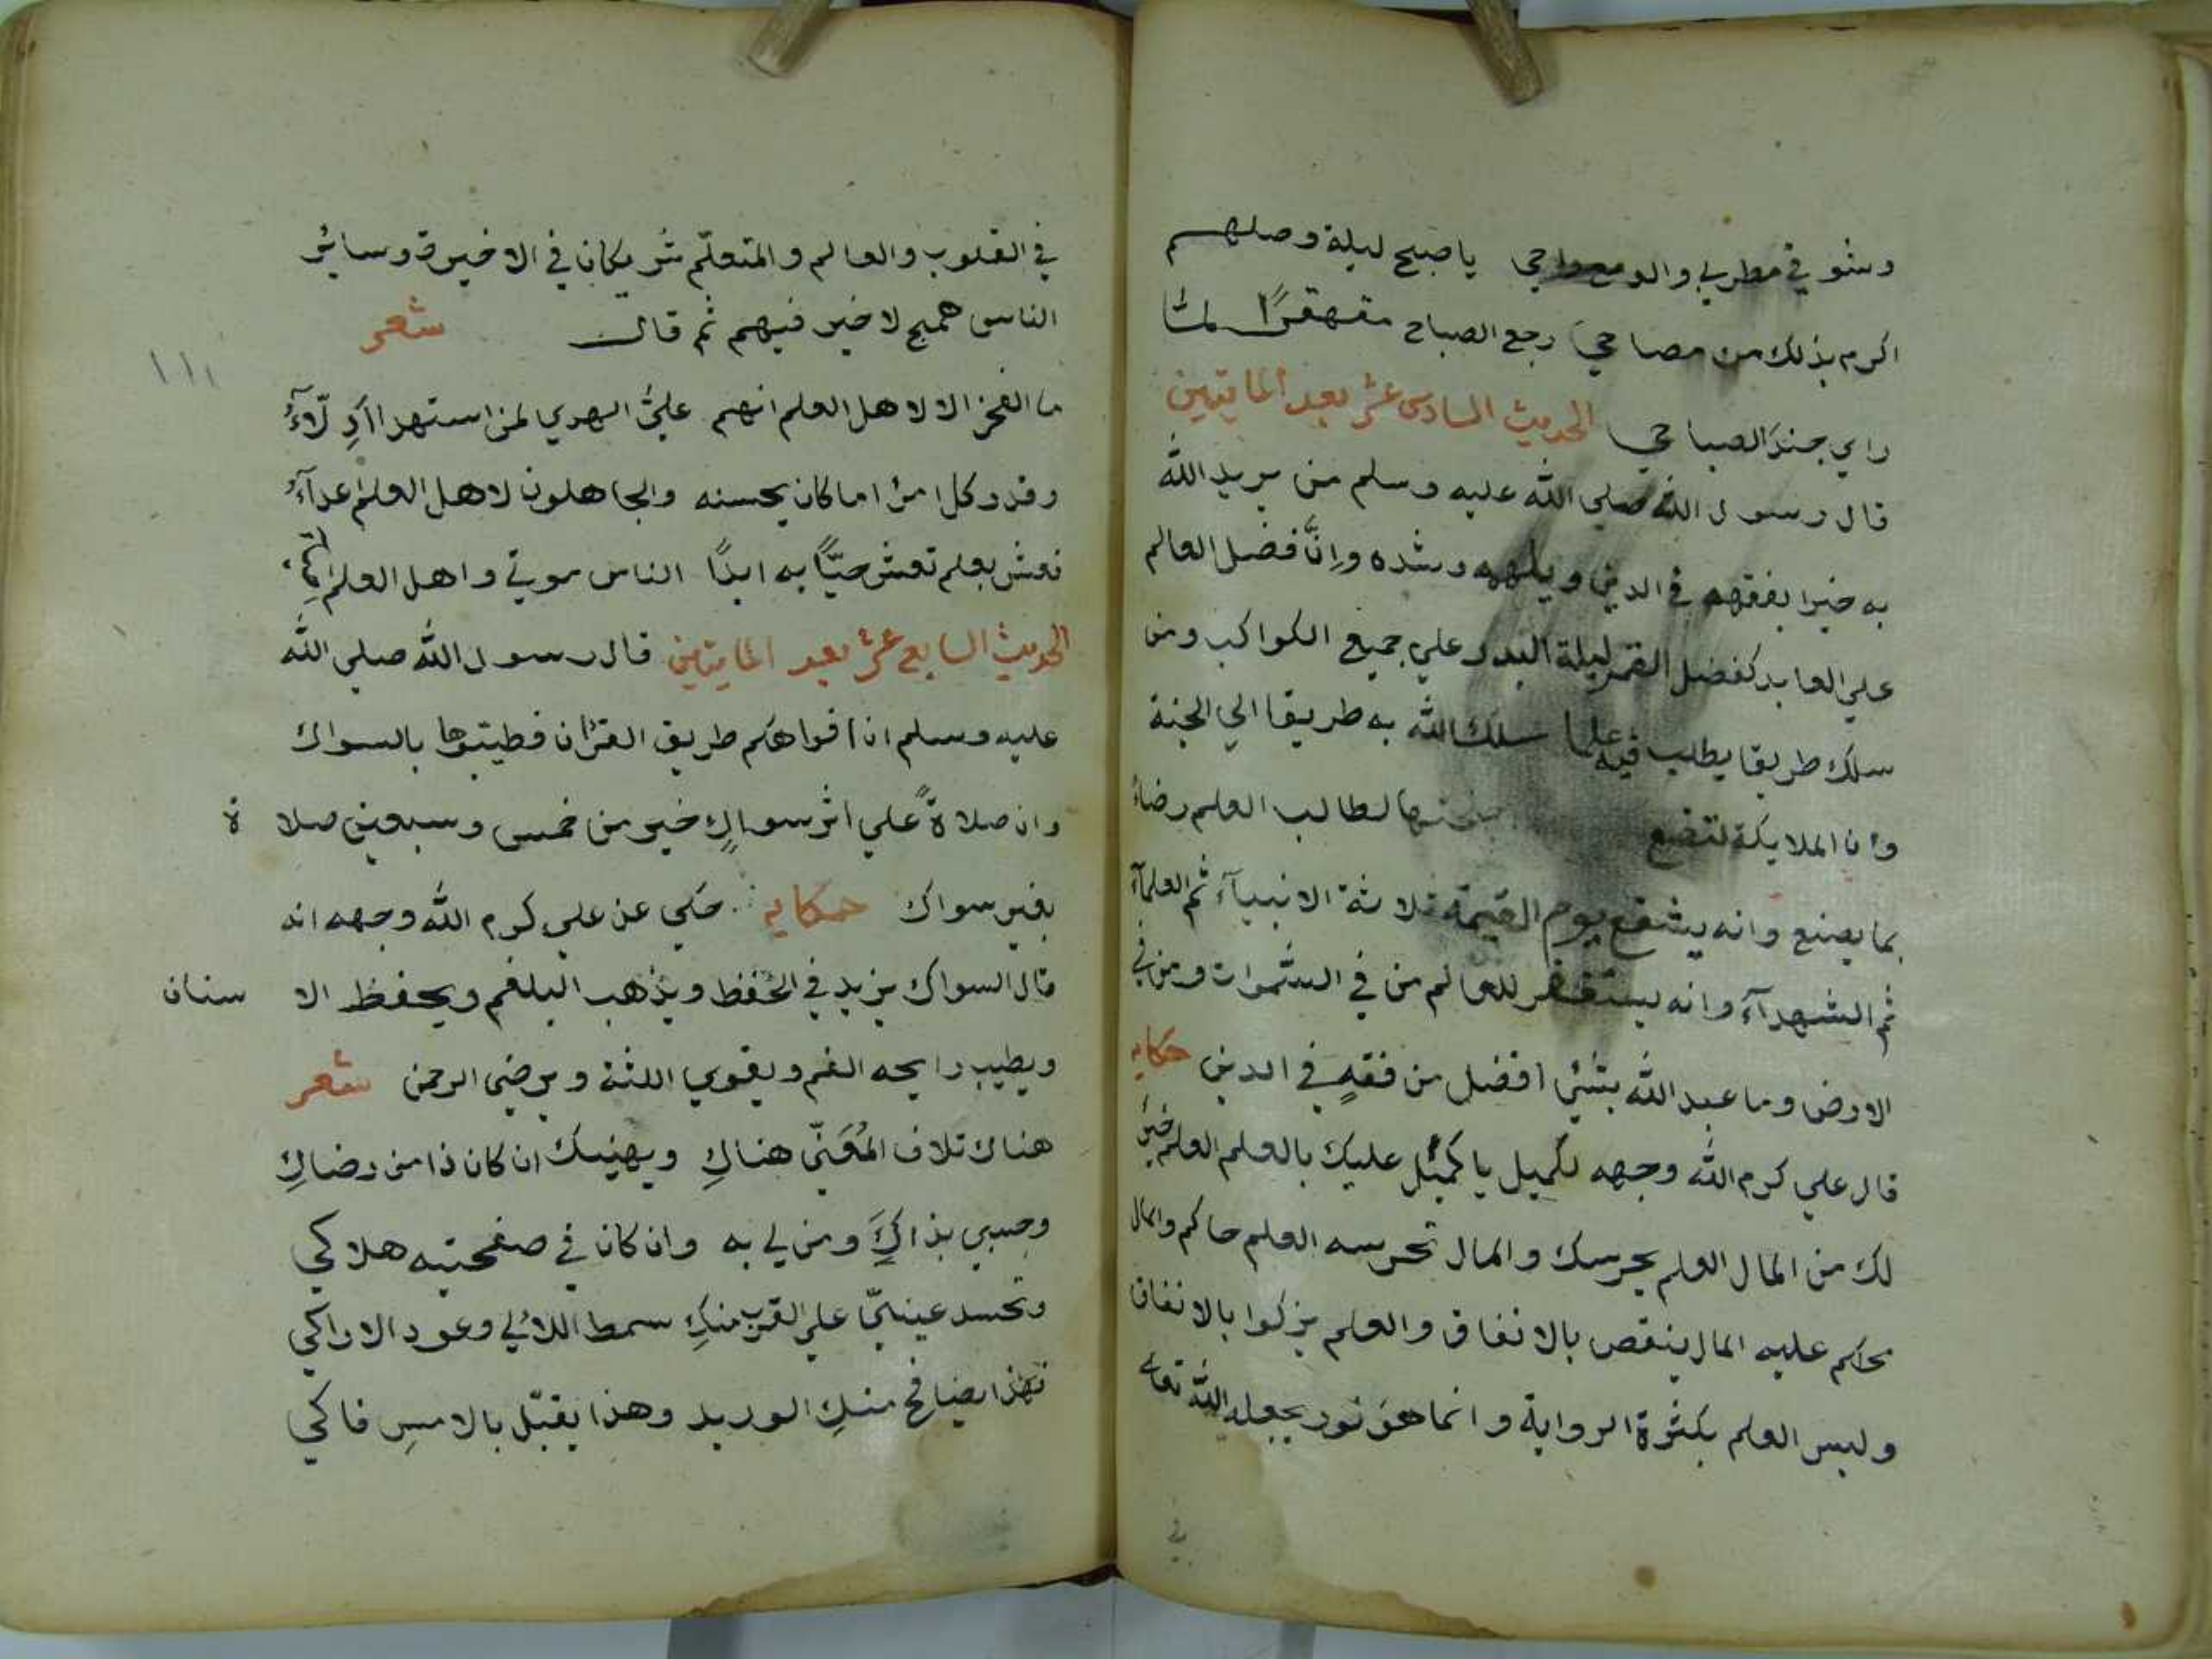 وشوقي مطربي والدمع راحي يا صبح ليلة وصلهم
اكرم بذلك من مصاحي رجع الصباح مقهقرًا لما
راي جند الصباحي الحديث السادس عشر بعد المايتين
قال رسول الله صلي الله عليه وسلم من يريد الله
به خيرا يفقهه في الدين ويلهمه رشده وانَّ فضل العالم
علي العابد كفضل القمر ليلة البدر علي جميع الكواكب ومن
سلك طريقا يطلب فيه علما سلك الله به طريقا الي الجنة
وان الملايكة لتضع لطالب العلم رضاءً
بما يصنع وانه يشفع يوم القيمة ثلاثة الانبيآء ثم العلمآء
ثم الشهدآء وانه ليستغفر للعالم من في السموات ومن في
الارض وما عبد الله بشئي افضل من فقهٍ في الدين حكايه
قال علي كرم الله وجهه لكميل يا كميل عليك بالعلم العلم خير
لك من المال العلم يحرسك والمال تحرسه العلم حاكم والمال
محاكم عليه المال ينقص بالانفاق والعلم يزكوا بالانفاق
وليس العلم بكثرة الرواية وانما هو نور يجعله الله تعالي
في
في القلوب والعالم والمتعلّم شريكان في الاخيرة وسائر
الناس همج لا خير فيهم ثم قال شعر
١١١
ما الفخر الا لاهل العلم انهم علي الهدي لمن استهدا ادِلّآءُ
وقدر كل امرٔا ما كان يحسنه والجاهلون لاهل العلم اعدآءُ
فعش بعلم تعش حيًّا به ابدًا الناس موتي واهل العلم احيآء
الحديث السابع عشر بعد المايتين قال رسول الله صلي الله
عليه وسلم ان افواهكم طريق القرٔان فطيّبوها بالسواك
وان صلاةً علي اثر سواكٍ خير من خمس وسبعين صلا ة
بغير سواك حكايه حكي عن علي كرم الله وجهه انه
قال السواك يزيد في الحفظ ويذهب البلغم ويحفظ الا سنان
ويطيب رايحه الفم ويقوي اللثة ويرضي الرحمن شعر
هناك تلاف المُعَنّي هناكِ ويهنيك ان كان ذا من رضاكِ
وحسبي بذاكِ ومن لي به وان كان في صفحتيه هلاكي
وتحسد عينيّ علي القرب منكِ سمط اللألي وعود الاراكي
فهذا يضافح منكِ الوريد وهذا يقبّل بالامسِ فاكي